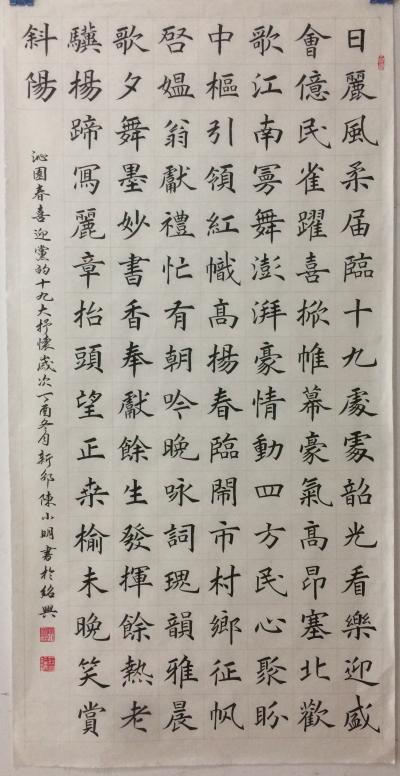 日麗風柔届臨十九處處韶光看樂迎盛
會億民雀躍喜掀帷幕豪氣高昂塞北歡
歌江南雩舞澎湃豪情動四方民心聚盼
中樞引領紅幟高揚春臨鬧市村鄉征帆
啓媼翁獻禮忙有朝吟晚咏詞瑰韻雅晨
歌夕舞墨妙書香奉獻餘生發揮餘熱老
驥揚蹄寫麗章抬頭望正桒榆未晚笑賞
斜陽
沁園春喜迎黨的十九大抒懷歲次丁酉冬月新邵陳小明書於紹興